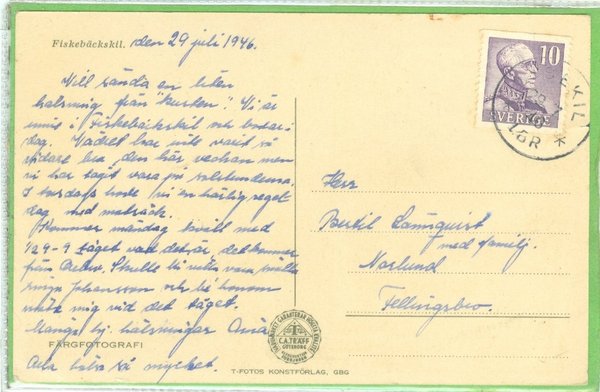 Fiskebäckskil. den 29 juli 1946.
Vill sända en liten
hälsning från "kusten". Vi är
nu i Fiskebäckskil och badar i
dag. Vädret har inte varit så
vidare bra, den här veckan men
vi har tagit vara på solstunderna.
I torsdags hade vi en härlig segel
dag med matsäck.
Kommer måndag kväll med
129-9 tåget vad det är det kommer
från Örebro. Skulle
Johansson och be honom
möta mig vid det tåget.
Många hj. hälsningar
så mycket.
FÄRGFOTOGRAFI
C.A. TRÄFF
GÖTEBORG
T-FOTOS KONSTFÖRLAG, GBG
10
SVERIGE
Herr
Bertil Lannquist
med familj.
Norlund
Fellingsbro.